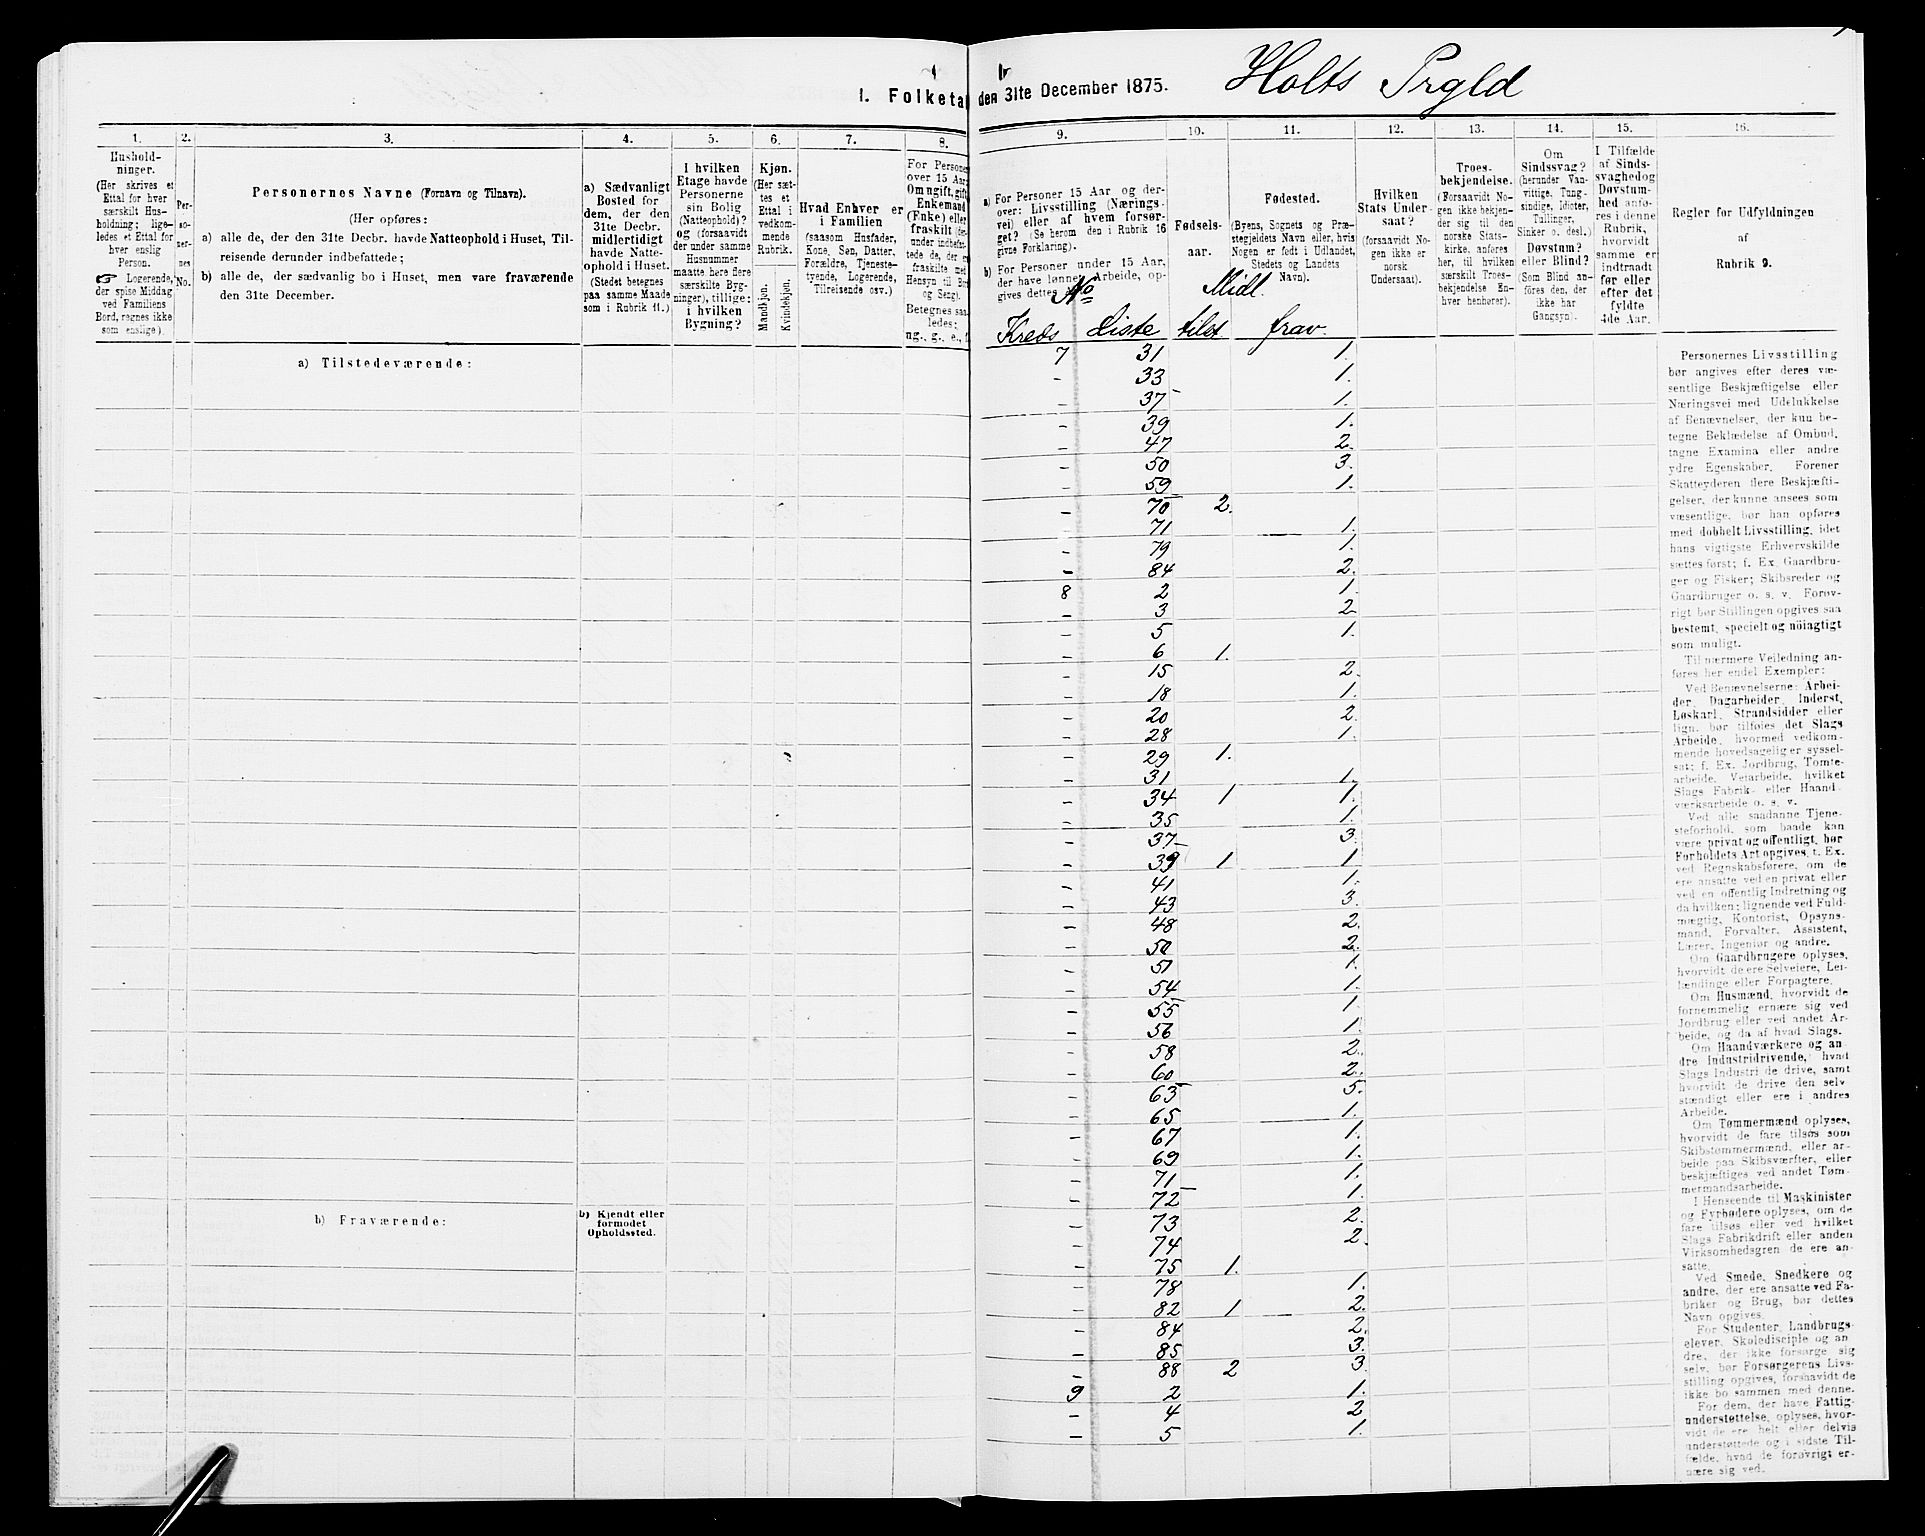 1. Folketa
den 31te December 1875.
Holts Prgld
1.
2.
3.
4.
5.
6.
7.
8.
Hushold-
ninger.
(Her skrives et
Ettal for hver
særskilt Hus-
holdning; lige-
ledes et Ettal for
hver enslig
Person.
☞ Logerende,
der spise Middag
ved Familiens
Bord, regnes ikke
som enslige).
Per-
so-
ner-
nes
No.
Personernes Navne (Fornavn og Tilnavn).
(Her opføres:
a) alle de, der den 31te Decbr. havde Natteophold i Huset, Til-
reisende derunder indbefattede;
b) alle de, der sædvanlig bo i Huset, men vare fraværende
den 31te December.
a) Sædvanligt
Bosted for
dem, der den
31te Decbr.
midlertidigt
havde Natte-
ophold i Huset.
(Stedet betegnes
paa samme Maade
som i Rubrik 11.)
I hvilken
Etage havde
Personerne
sin Bolig
(Natteophold)?
og (forsaavidt
der under samme
Husnummer
maatte høre flere
særskilte Byg-
ninger), tillige:
i hvilken
Bygning?
Kjøn.
(Her sæt-
tes et
Ettal i
vedkom-
mende
Rubrik.
Mandkjøn.
Kvindekjøn.
Hvad Enhver er
i Familien
(saasom Husfader,
Kone, Søn, Datter,
Forældre, Tjeneste-
tyende, Logerende,
Tilreisende osv.)
For Persone
over 15 Aar
Om ugift, gift
Enkemand
(Enke) eller
fraskilt
Betegnes saa-
ledes:
ng., g., e., f.
a) Tilstedeværende:
b) Fraværende:
b) Kjendt eller
formodet
Opholdssted.
9.
10.
11.
12.
13.
14.
15.
16.
a) For Personer 15 Aar og der-
over: Livsstilling (Nærings-
vei) eller af hvem forsør-
get? (Se herom den i Rubrik 16
givne Forklaring).
b) For Personer under 15 Aar,
der have lønnet Arbeide, op-
gives dettes
Fødsels-
aar.
Fødested.
(Byens, Sognets og Præ-
stegjeldets Navn eller, hvis
Nogen er født i Udlandet,
Stedets og Landets
Navn).
Hvilken
Stats Under-
saat?
(forsaavidt No-
gen ikke er
norsk
Undersaat).
Troes-
bekjendelse.
(Forsaavidt No-
gen ikke bekjen-
der sig til den
norske Stats-
kirke, anføres
her, til hvilken
særskilt Troes-
bekjendelse En-
hver henhører).
Om
Sindssvag?
(herunder Van-
vittige, Tung-
sindige, Idioter,
Tullinger,
Sinker o. desl.)
Døvstum?
eller Blind?
(Som Blind an-
føres den, der
ikke har
Gangsyn).
I Tilfælde
af Sinds-
svaghed og
Døvstum-
hed anfø-
res i denne
Rubrik,
hvorvidt
samme er
indtraadt
før eller
efter det
fyldte
4de Aar.
Regler for Udfyldningen
af
Rubrik 9.
No Midl.
Kreds Liste tilst frav.
7 31 1.
– 33 1.
– 37 1.
– 39 1.
– 47 2.
– 50 3.
– 59 1.
– 70 2.
– 71 1.
– 79 1.
– 84 2.
8 2 1.
– 3 2
– 5 1.
– 6 1.
– 15 2.
– 18 1.
– 20 2.
– 28 1.
– 29 1.
– 31 1.
– 34 1 1.
– 35 1.
– 37 3.
– 39 1 1
– 41 1.
– 43 3.
– 48 2.
– 50 2.
– 51 1.
– 54 1.
– 55 1.
– 56 1.
– 58 2.
– 60 2.
– 63 5.
– 65 1.
– 67 1.
– 69 1.
– 71 1.
– 72 1.
– 73 2.
– 74 2.
– 75 1.
– 78 1.
– 82 1 2.
– 84 2.
– 85 3.
– 88 2 3
9 2 1.
– 4 2
– 5 1.
Personernes Livsstilling
bør angives efter deres væ-
sentlige Beskjæftigelse eller
Næringsvei med Udelukkelse
af Benævnelser, der kun be-
tegne Beklædelse af Ombud,
tagne Examina eller andre
ydre Egenskaber. Forener
Skatteyderen flere Beskjæfti-
gelser, der kunne ansees som
væsentlige, bør han opføres
med dobbelt Livsstilling, idet
hans vigtigste Erhvervskilde
sættes først; f. Ex. Gaardbru-
ger og Fisker; Skibsreder og
Gaardbruger o. s. v. Forøv-
rigt bør Stillingen opgives saa
bestemt, specielt og nöiagtigt
som muligt.
Til nærmere Veiledning an-
føres her endel Exempler:
Ved Benævnelserne: Arbei-
der, Dagarbeider, Inderst,
Løskarl, Strandsidder eller
lign. bør tilføies det Slags
Arbeide, hvormed vedkom-
mende hovedsagelig er syssel-
sat; f. Ex. Jordbrug, Tomte-
arbeide, Veiarbeide, hvilket
Slags Fabrik- eller Haand-
værksarbeide o. s. v.
Ved alle saadanne Tjene-
steforhold, som baade kan
være privat og offentligt, bør
Forholdets Art opgives, t. Ex.
ved Regnskabsførere, om de
ere ansatte ved en privat eller
ved en offentlig Indretning og
da hvilken; lignende ved Fuld-
mægtig, Kontorist, Opsyns-
mand, Forvalter, Assistent,
Lærer, Ingeniør og andre.
Om Gaardbrugere oplyses,
hvorvidt de ere Selveiere, Lei-
lændinge eller Forpagtere.
Om Husmænd, hvorvidt de
fornemmelig ernære sig ved
Jordbrug eller ved andet Ar-
beide, og da af hvad Slags.
Om Haandværkere og an-
dre Industridrivende, hvad
Slags Industri de drive, samt
hvorvidt de drive den selv-
stændigt eller ere i andres
Arbeide.
Om Tømmermænd oplyses,
hvorvidt de fare tilsøs som
Skibstømmermænd, eller ar-
beide paa Skibsværfter, eller
beskjæftiges ved andet Tøm-
mermandsarbeide.
I Henseende til Maskinister
og Fyrbødere oplyses, om de
fare tilsøs eller ved hvilket
Slags Fabrikdrift eller anden
Virksomhedsgren de ere an-
satte.
Ved Smede, Snedkere og
andre, der ere ansatte ved Fa-
briker og Brug, bør dettes
Navn opgives.
For Studenter, Landbrugs-
elever, Skoledisciple og an
dre, der ikke forsørge sig
selv, bør Forsørgerens Livs-
stilling opgives, forsaavidt de
ikke bo sammen med denne.
For dem, der have Fattig-
understøttelse, oplyses, hvor-
vidt de ere helt eller delvis
understøttede og i sidste Til-
fælde, hvad de forøvrigt er-
nære sig ved.